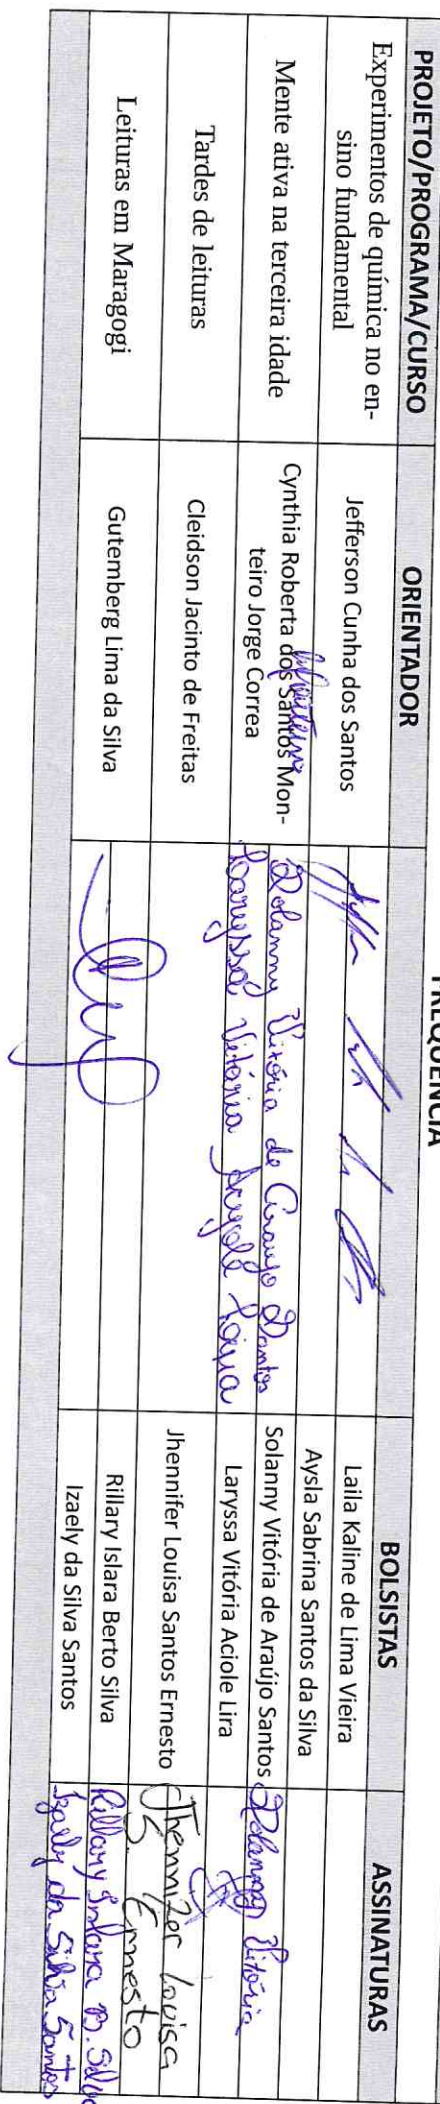 FREQUÊNCIA
PROJETO/PROGRAMA/CURSO ORIENTADOR BOLSISTAS ASSINATURAS
Experimentos de química no en-
sino fundamental
Jefferson Cunha dos Santos
Laila Kaline de Lima Vieira
Aysla Sabrina Santos da Silva
Mente ativa na terceira idade
Cynthia Roberta dos Santos Mon-
teiro Jorge Correa
Solanny Vitória de Araujo Santos
Solanny Vitória de Araújo Santos
Solanny Vitória
Laryssa Vitória Acyole Lira
Laryssa Vitória Aciole Lira
Tardes de leituras
Cleidson Jacinto de Freitas
Jhennifer Louisa Santos Ernesto
Jhennifer Louisa
S. Ernesto
Leituras em Maragogi
Gutemberg Lima da Silva
Rillary Islara Berto Silva
Rillary Islara B. Silva
Izaely da Silva Santos
Izaely da Silva Santos